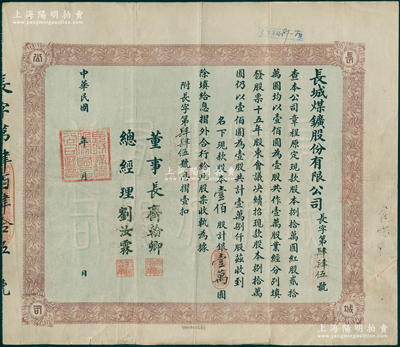 上海阳明拍卖
長城煤鑛股份有限公司 長字第肆肆伍號
查本公司章程原定現款股本捌拾萬圓紅股貳拾
萬圓均以壹佰圓為壹股共作壹萬股業經分別填
發股票十五年股東會議決續招現款股本捌拾萬
圓仍以壹佰圓為壹股共計壹萬捌仟股茲收到
名下現款股本壹佰股計銀壹萬圓
除填給息摺外合行給此股票收執為據
附長字第肆肆伍號息摺壹扣
董事長 齊翰卿
總經理 劉汝霖
中華民國 年 月 日
長字第肆百肆拾伍號
長
城
公
司